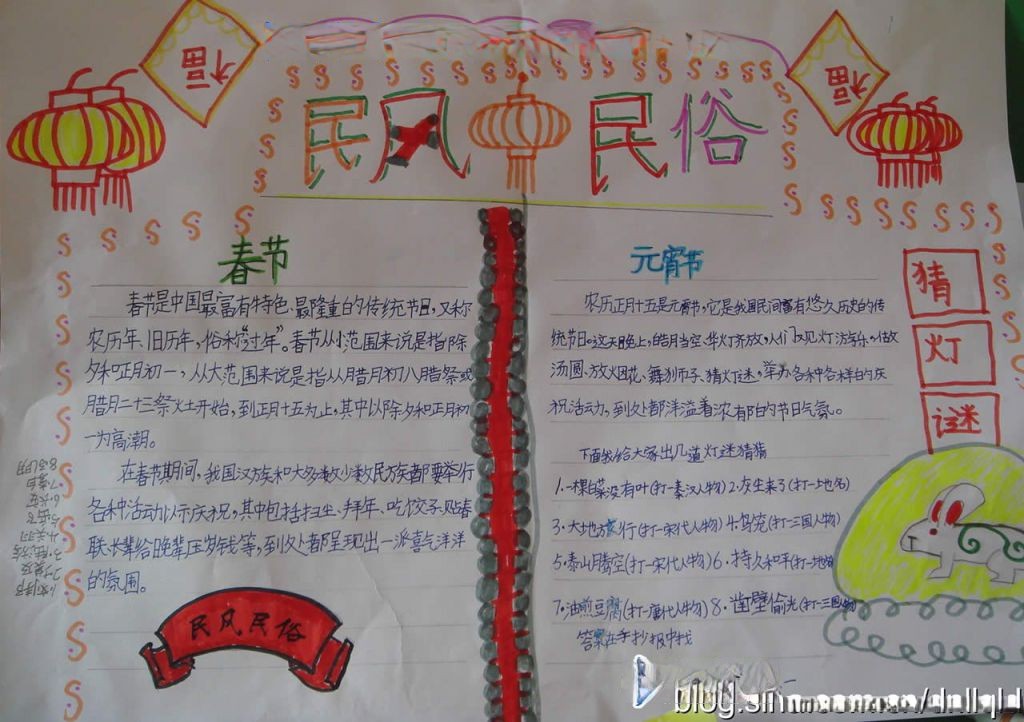 福
福
民风民俗
春节
春节是中国最富有特色、最隆重的传统节日,又称
农历年、旧历年,俗称“过年”。春节从小范围来说是指除
夕和正月初一,从大范围来说是指从腊月初八腊祭或
腊月二十三祭灶开始,到正月十五为止,其中以除夕和正月初
一为高潮。
在春节期间,我国汉族和大多数少数民族都要举行
各种活动以示庆祝,其中包括扫尘、拜年、吃饺子、贴春
联、长辈给晚辈压岁钱等,到处都呈现出一派喜气洋洋
的氛围。
民风民俗
元宵节
农历正月十五是元宵节,它是我国民间富有悠久历史的传
统节日。这天晚上,皓月当空,华灯齐放,人们
汤圆、放烟花、舞狮子、猜灯谜,举办各种各样的庆
祝活动,到处都洋溢着浓郁的节日气氛。
下面我给大家出几道灯谜猜猜
1.一棵白菜没有叶(打一秦汉人物) 2.灰尘来了(打一地名)
3.大地方行(打一宋代人物) 4.鸟笼(打一三国人物)
5.泰山腾空(打一宋代人物) 6.持久和平(打一地名)
7.油煎豆腐(打一唐代人物) 8.凿壁偷光(打一三国人物)
答案在手抄报中找
猜
灯
谜
blog.sina.com.cn/dnllqld